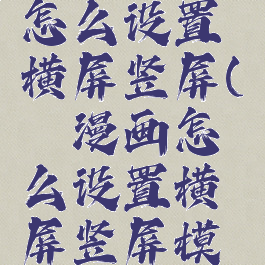 怎么设置
横屏竖屏(
漫画怎
么设置横
屏竖屏模